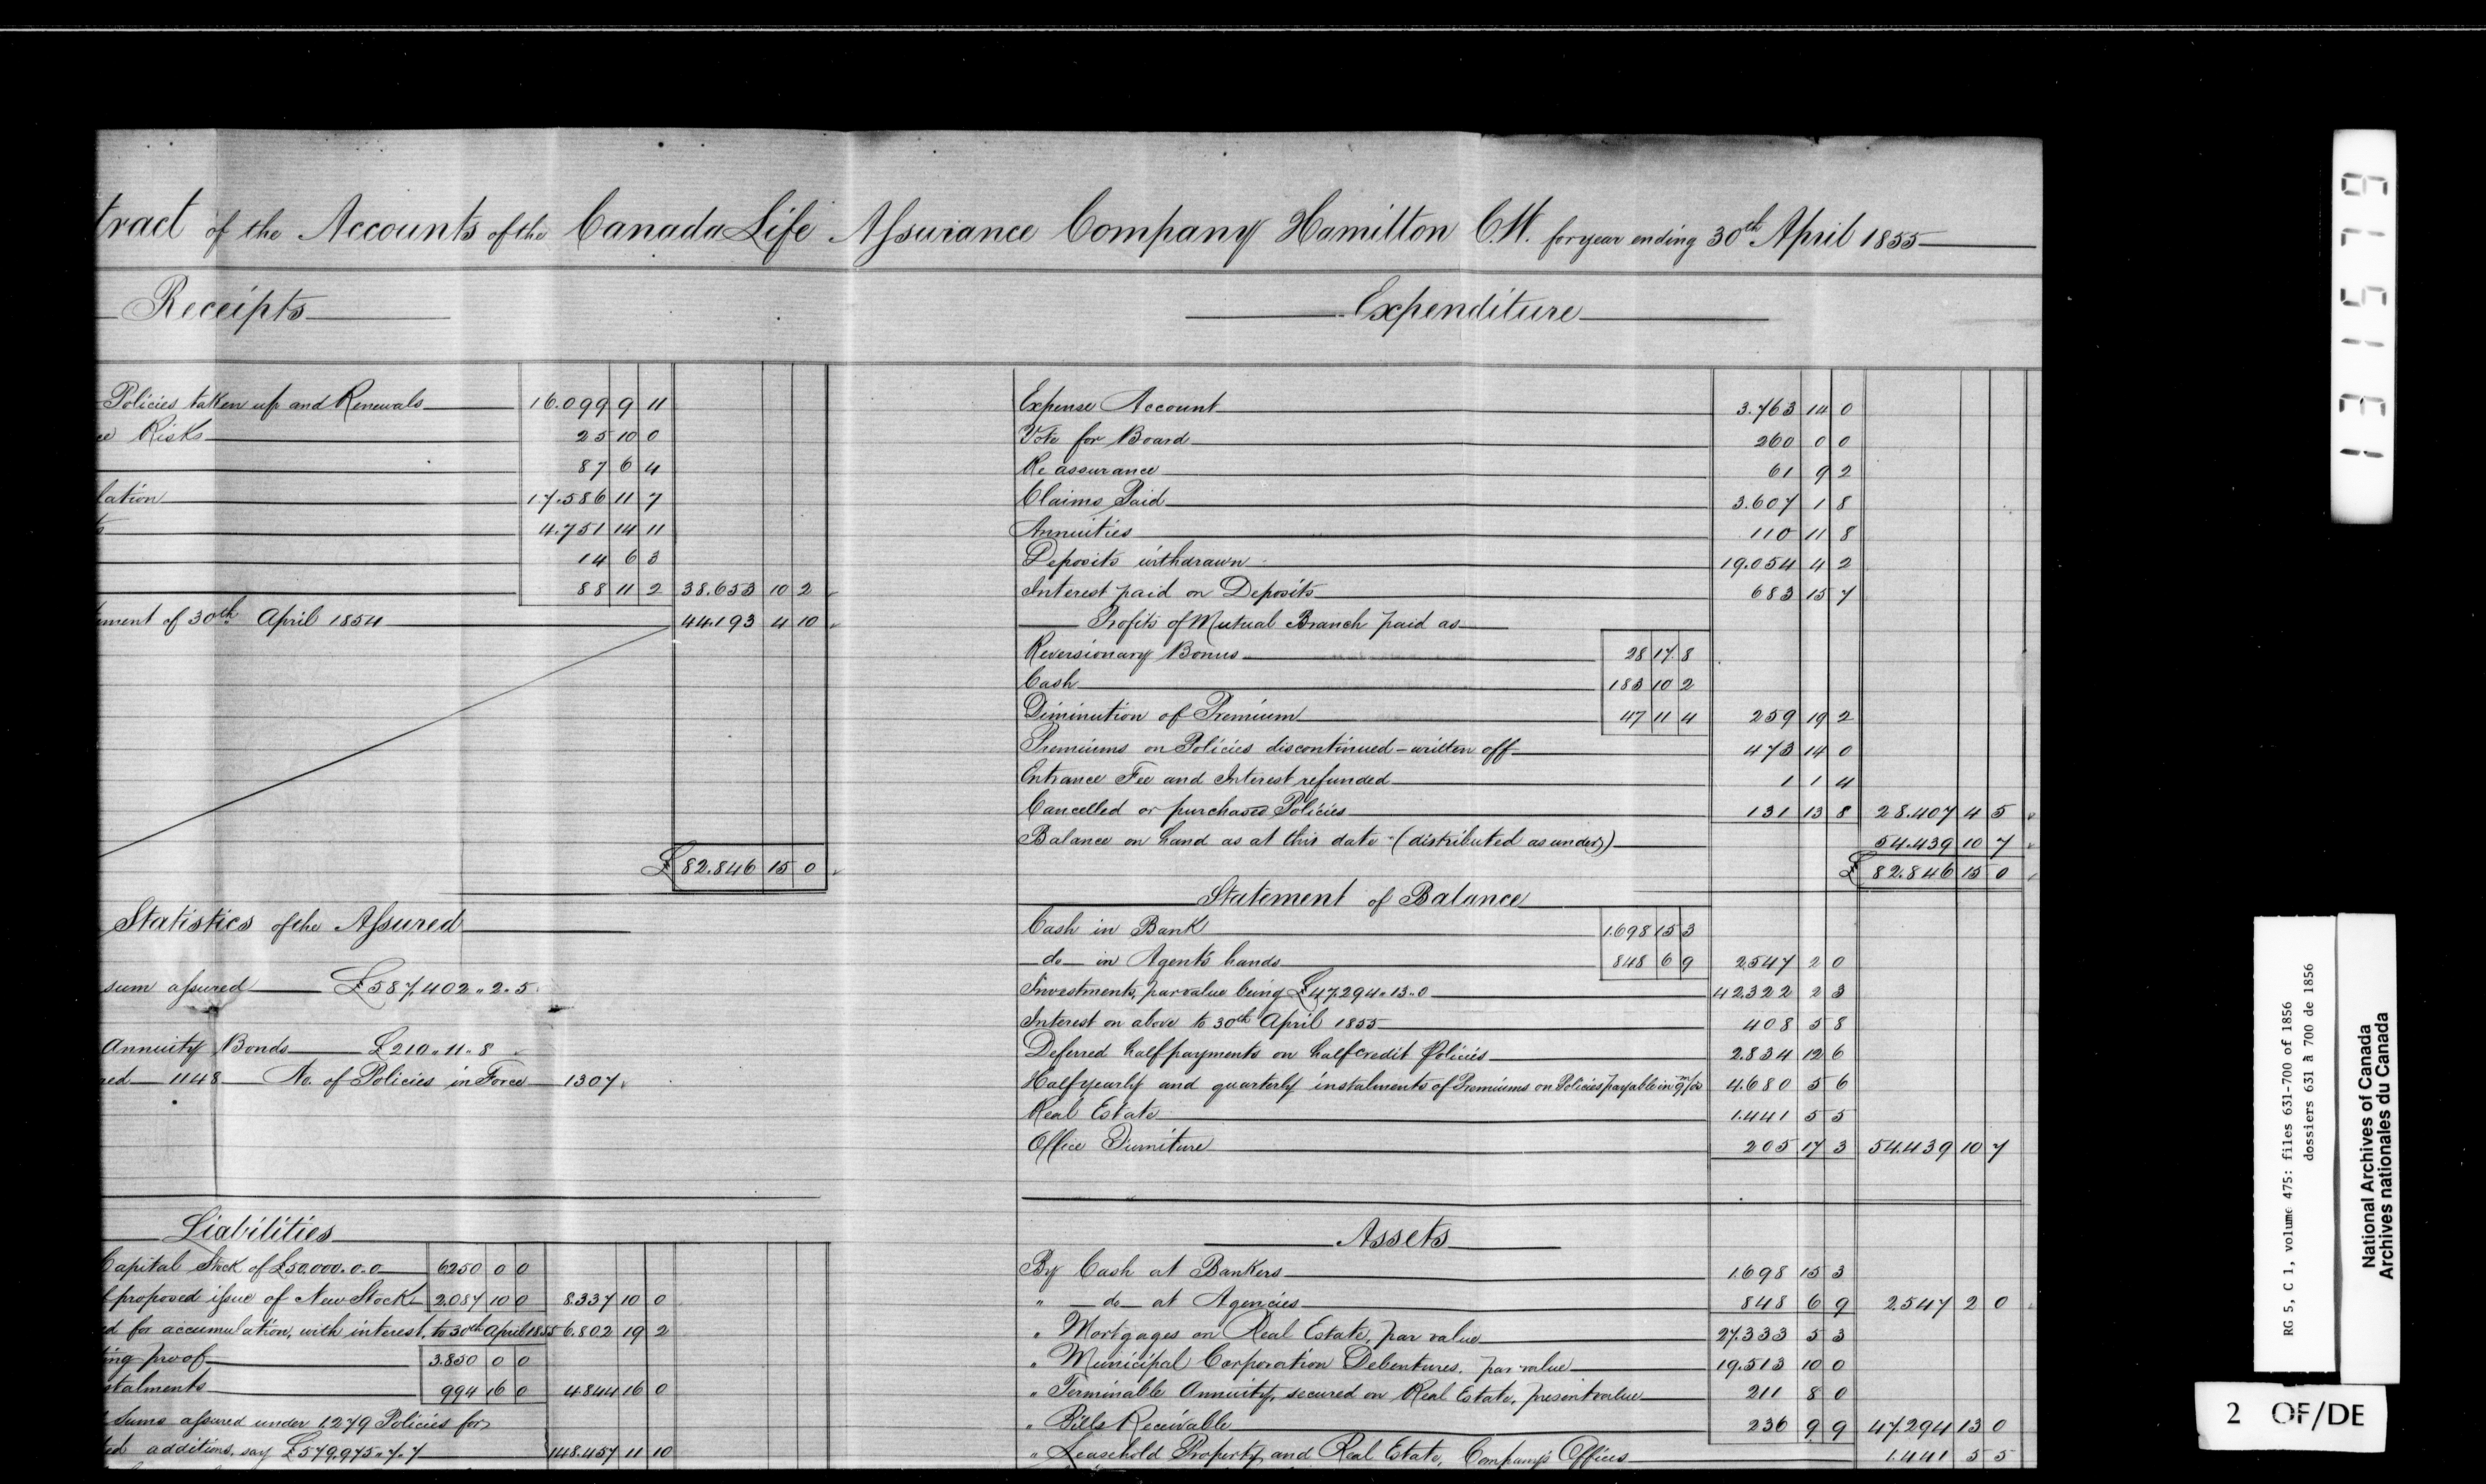 tract of the Accounts of the Canada Life Assurance Company Hamilton C.W. for year ending 30th April 1855
Receipts
Policies taken up and Renewals 16.099 9 11
ce Risks 25 10 0
87 6 4
lation 17.586 11 7
4.751 14 11
14 6 3
88 11 2 38.653 10 2
ment of 30th April 1854 44.193 4 10
£ 82.846 15 0
Statistics of the Assured
sum assured £587,402.. 2.. 5
Annuity Bonds £210.. 11.. 8
red 1148 No. of Policies in Force 1307
Liabilities
Capital Stock of £50.000.0.0 6250 0 0
f proposed issue of New Stock 2.087 10 0 8.337 10 0
ed for accumulation, with interest, to 30th April 1855 6.802 19 2
ing proof 3.850 0 0
stalments 994 16 0 4.844 16 0
sums assured under 1.279 Policies for
ted additions, say £579,975.. 7.. 7 148.457 11 10
Expenditure
Expense Account 3.763 14 0
Vote for Board 260 0 0
Re assurance 61 9 2
Claims Paid 3.607 1 8
Annuities 110 11 8
Deposits withdrawn 19.054 4 2
Interest paid on Deposits 683 15 7
Profits of Mutual Branch paid as
Reversionary Bonus 28 17 8
Cash 183 10 2
Diminution of Premium 47 11 4 259 19 2
Premiums on Policies discontinued - written off 473 14 0
Entrance Fee and Interest refunded 1 1 4
Cancelled or purchased Policies 131 13 8 28.407 4 5
Balance on hand as at this date (distributed as under) 54.439 10 7
£ 82.846 15 0
Statement of Balance
Cash in Bank 1.698 15 3
do in Agents hands 848 6 9 2547 2 0
Investments, par value being £47,294.. 13.. 0 42.322 2 3
Interest on above to 30th April 1855 408 5 8
Deferred half payments on half credit Policies 2.834 12 6
Half yearly and quarterly instalments of Premiums on Policies payable in 9 m/s 4.680 5 6
Real Estate 1.441 5 5
Office Furniture 205 17 3 54.439 10 7
Assets
By Cash at Bankers 1.698 15 3
" do at Agencies 848 6 9 2.547 2 0
" Mortgages on Real Estate, par value 27.333 5 3
" Municipal Corporation Debentures, par value 19.513 10 0
" Terminable Annuity, secured on Real Estate, present value 211 8 0
" Bills Receivable 236 9 9 47.294 13 0
" Leasehold Property and Real Estate, Company's Offices 1.441 5 5
131579
RG 5, C 1, volume 475: files 631-700 of 1856
dossiers 631 à 700 de 1856
National Archives of Canada
Archives nationales du Canada
2 OF/DE